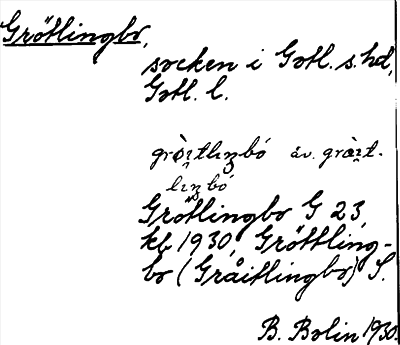 Grötlingbo,
socken i Gotl. s. hd,
Gotl. l.
gròi̯tlɪŋbó äv. gràɪ̯t-
lɪŋbó
Grötlingbo G 23,
kb 1930, Gröttling-
bo (Gråitlingbo) S.
B. Bolin 1930.